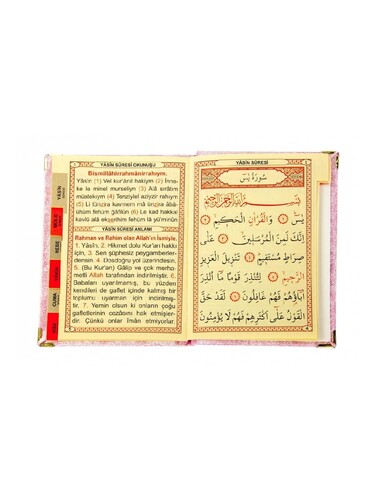 YÂSİN SÛRESİ OKUNUŞU
Bismillâhirrahmânirrahıym.
Yâsîn (1) Vel kur'ânil hakiym (2) İnne-
ke le minel murseliyn (3) Alâ sırâtim
müstekıym (4) Tenziylel aziyzir rahıym
(5) Li tünzira kavmen mâ ünzira âbâ-
ühüm fehüm ğâfilûn (6) Le kad hakkal
kavlü alâ ekserihim fehüm lâ yü'minûn
YÂSİN SÛRESİ ANLAMI
Rahman ve Rahim olan Allah'ın İsmiyle.
1. Yâsîn. 2. Hikmet dolu Kur'an hakkı
için, 3. Sen şüphesiz peygamberler-
densin. 4. Dosdoğru yol üzerindesin.
5. (Bu Kur'an) Gâlip ve çok merha-
metli Allah tarafından indirilmiştir. 6.
Babaları uyarılmamış, bu yüzden
kendileri de gaflet içinde kalmış bir
toplumu uyarman için indirilmiş-
tir. 7. Yemin olsun ki onların çoğu
gafletlerinin cezâsını hak etmişler-
dir. Çünkü onlar îman etmiyorlar.
YÂSİN
CUMA
YÂSİN SÛRESİ
سُورَةُ يٰسٓ
بِسْمِ اللّٰهِ الرَّحْمٰنِ الرَّحِيمِ
يٰسٓ ۞ وَالْقُرْاٰنِ الْحَكِيمِ ۞
اِنَّكَ لَمِنَ الْمُرْسَلِينَ ۞ عَلٰى
صِرَاطٍ مُسْتَقِيمٍ ۞ تَنْزِيلَ الْعَزِيزِ
الرَّحِيمِ ۞ لِتُنْذِرَ قَوْمًا مَٓا اُنْذِرَ
اٰبَٓاؤُ۬هُمْ فَهُمْ غَافِلُونَ ۞ لَقَدْ حَقَّ
الْقَوْلُ عَلٰٓى اَكْثَرِهِمْ فَهُمْ لَا يُؤْمِنُونَ